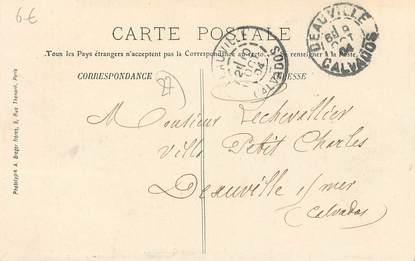 6 €
CARTE POSTALE
Tous les Pays étrangers n'acceptent pas la Correspondance au
à la Poste.
CORRESPONDANCE
ADRESSE
DEAUVILLE
OCT
04
CALVADOS
DEAUVILLE
OCT
04
CALVADOS
Monsieur Lechevallier
Villa Petit Charles
Deauville s/mer
(Calvados)
Phototypie A. Breger frères, 9, Rue Thénard, Paris